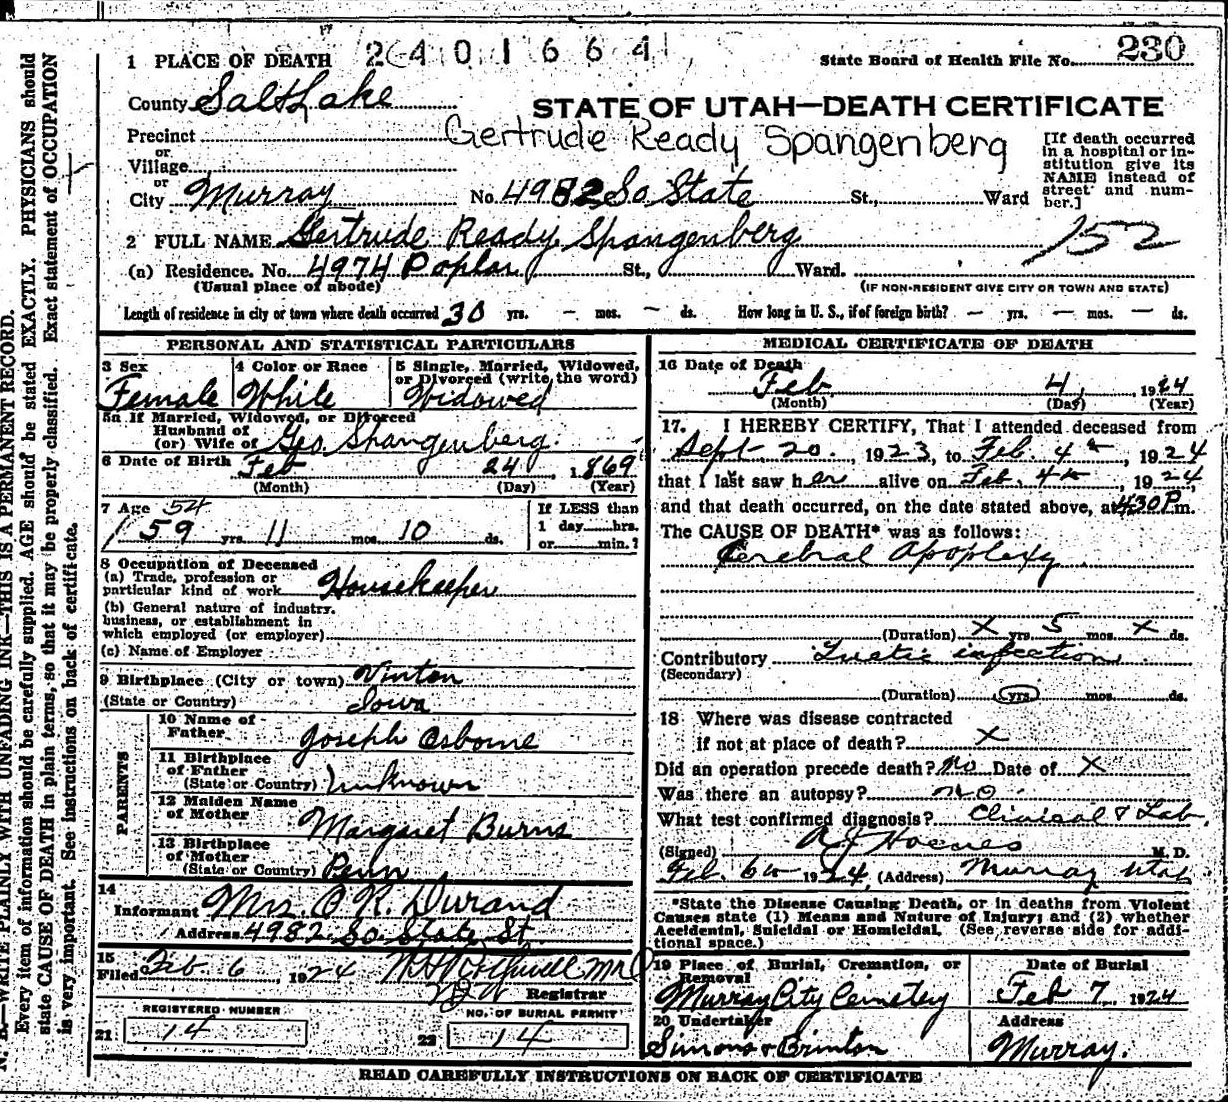 1 PLACE OF DEATH 2401664 State Board of Health File No. 230
County Salt Lake
STATE OF UTAH—DEATH CERTIFICATE
Precinct
Gertrude Ready Spangenberg
or
Village
or
City Murray No. 4982 So State St., Ward
[If death occurred
in a hospital or in-
stitution give its
NAME instead of
street and num-
ber.]
2 FULL NAME Gertrude Ready Spangenberg
152
(a) Residence. No. 4974 Poplar St., Ward.
(Usual place of abode) (IF NON-RESIDENT GIVE CITY OR TOWN AND STATE)
Length of residence in city or town where death occurred 30 yrs. - mos. - ds. How long in U. S., if of foreign birth? - yrs. - mos. - ds.
PERSONAL AND STATISTICAL PARTICULARS
3 Sex 4 Color or Race 5 Single, Married, Widowed,
or Divorced (write the word)
Female White Widowed
5a If Married, Widowed, or Divorced
Husband of
(or) Wife of Geo Spangenberg
6 Date of Birth Feb 24 1869
(Month) (Day) (Year)
7 Age 54 If LESS than
59 yrs. 11 mos. 10 ds. 1 day hrs.
or min.?
8 Occupation of Deceased
(a) Trade, profession or
particular kind of work Housekeeper
(b) General nature of industry,
business, or establishment in
which employed (or employer)
(c) Name of Employer
9 Birthplace (City or town) Vinton
(State or Country) Iowa
PARENTS
10 Name of
Father Joseph Osborne
11 Birthplace
of Father
(State or Country) Unknown
12 Maiden Name
of Mother Margaret Burns
13 Birthplace
of Mother
(State or Country) Penn
14
Informant Mrs. O K. Durand
Address 4982 So. State St.
15
Filed Feb. 6 1924
Registrar
REGISTERED NUMBER NO. OF BURIAL PERMIT
21 14 22 14
MEDICAL CERTIFICATE OF DEATH
16 Date of Death
Feb 4, 1924
(Month) (Day) (Year)
17. I HEREBY CERTIFY, That I attended deceased from
Sept 20, 1923, to Feb. 4th, 1924
that I last saw her alive on Feb. 4th, 1924,
and that death occurred, on the date stated above, at 430 P m.
The CAUSE OF DEATH* was as follows:
Cerebral Apoplexy
(Duration) X yrs. 5 mos. X ds.
Contributory Luetic infection
(Secondary)
(Duration) yrs. mos. ds.
18 Where was disease contracted
if not at place of death? X
Did an operation precede death? No Date of X
Was there an autopsy? no
What test confirmed diagnosis? Clinical & Lab.
(Signed) M. D.
Feb. 6th 1924, (Address) Murray Utah
*State the Disease Causing Death, or in deaths from Violent
Causes state (1) Means and Nature of Injury; and (2) whether
Accidental, Suicidal or Homicidal. (See reverse side for addi-
tional space.)
19 Place of Burial, Cremation, or
Removal
Murray City Cemetery
Date of Burial
Feb 7, 1924
20 Undertaker Address
Simons & Brinton Murray.
READ CAREFULLY INSTRUCTIONS ON BACK OF CERTIFICATE
N. B.—WRITE PLAINLY WITH UNFADING INK—THIS IS A PERMANENT RECORD.
Every item of information should be carefully supplied. AGE should be stated EXACTLY. PHYSICIANS should
state CAUSE OF DEATH in plain terms, so that it may be properly classified. Exact statement of OCCUPATION
is very important. See instructions on back of certificate.